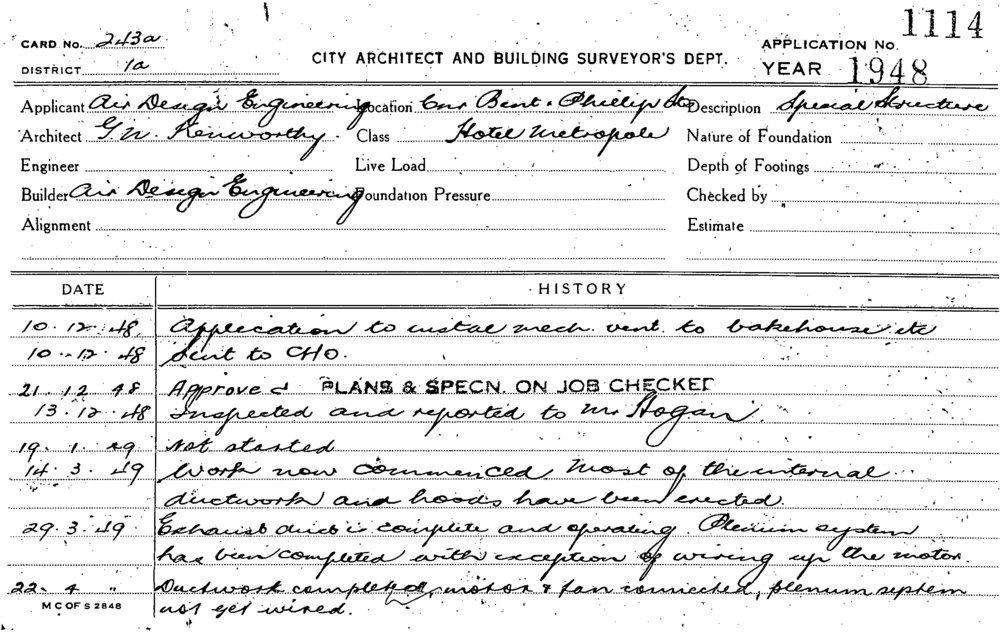 1114
CARD No. 243a
APPLICATION No.
CITY ARCHITECT AND BUILDING SURVEYOR'S DEPT.
DISTRICT 1a
YEAR 1948
Applicant Air Design Engineering Location Cnr Bent & Phillip Sts Description Special Structure
Architect G. N. Kenworthy Class Hotel Metropole Nature of Foundation
Engineer Live Load Depth of Footings
Builder Air Design Engineering Foundation Pressure Checked by
Alignment Estimate
DATE HISTORY
10.12.48 Application to instal mech. vent. to bakehouse etc
10.12.48 Sent to CHO.
21.12.48 Approved PLANS & SPECN. ON JOB CHECKED
13.12.48 Inspected and reported to Mr Hogan
19.1.49 Not started
14.3.49 Work now commenced. Most of the internal
ductwork and hoods have been erected.
29.3.49 Exhaust duct is complete and operating. Plenum system
has been completed with exception of wiring up the motor.
22.4 " Ductwork completed, motor & fan connected, plenum system
M C OF S 2848
not yet wired.